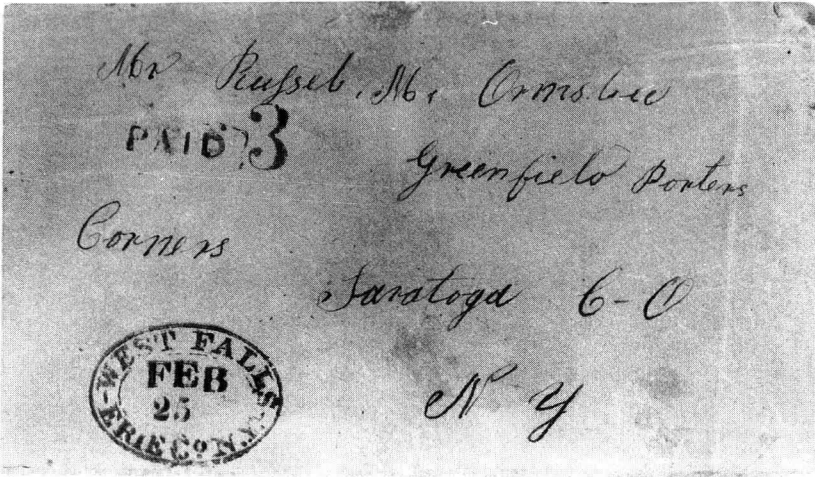 Mr Russel. M. Ormsbee
PAID 3
Greenfield Porters
Corners
Saratoga C-O
N Y
WEST FALLS
FEB
25
ERIE Co N.Y.